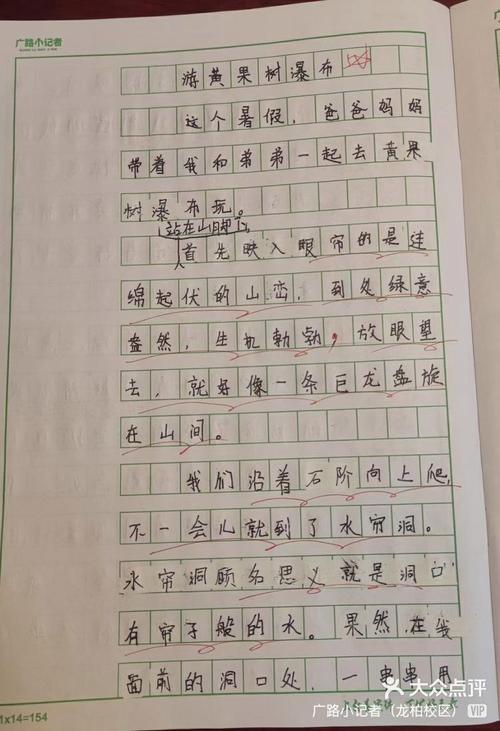 广路小记者
游黄果树瀑布
这个暑假,爸爸妈妈
带着我和弟弟一起去黄果
树瀑布玩。
站在山脚下,
首先映入眼帘的是连
绵起伏的山峦,到处绿意
盎然,生机勃勃,放眼望
去,就好像一条巨龙盘旋
在山间。
我们沿着石阶向上爬,
不一会儿就到了水帘洞。
水帘洞顾名思义就是洞口
有帘子般的水。果然在我
面前的洞口处,一串串用
大众点评
1x14=154
广路小记者(龙柏校区) VIP